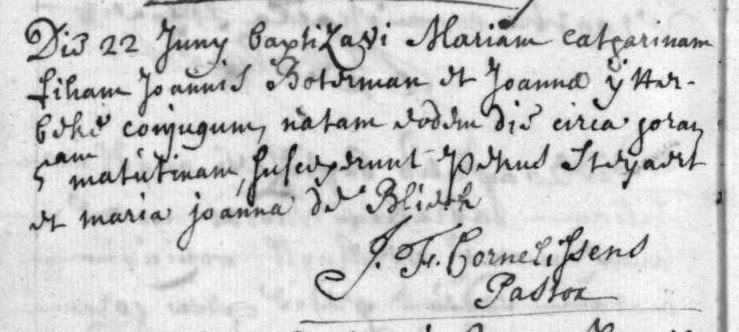 Die 22 Juny baptizavi Mariam catharinam
filiam Joannis Boterman et Joannæ ÿtter-
beke conjugum, natam eodem die circa horam
5am matutinam, susceperunt Petrus Steyaert
et maria joanna de Blieck
J. F. Cornelissens
Pastor